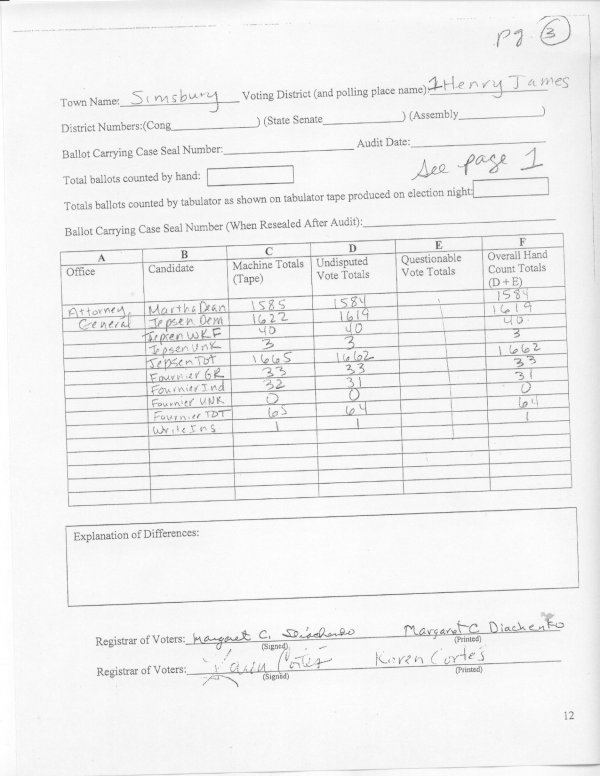 pg. 3
Town Name: Simsbury Voting District (and polling place name): 1 Henry James
District Numbers:(Cong ) (State Senate ) (Assembly )
Ballot Carrying Case Seal Number: Audit Date:
Total ballots counted by hand: See page 1
Totals ballots counted by tabulator as shown on tabulator tape produced on election night:
Ballot Carrying Case Seal Number (When Resealed After Audit):
A B C D E F
Office Candidate Machine Totals (Tape) Undisputed Vote Totals Questionable Vote Totals Overall Hand Count Totals (D + E)
Attorney Martha Dean 1585 1584 1584
General Jepsen Dem 1622 1619 1619
Jepsen WKF 40 40 40
Jepsen Unk 3 3 3
Jepsen TOT 1665 1662 1662
Fournier GR 33 33 33
Fournier Ind 32 31 31
Fournier UNK 0 0 0
Fournier TOT 65 64 64
Write Ins 1 1 1
Explanation of Differences:
Registrar of Voters: Margaret C. Diachenko Margaret C Diachenko
(Signed) (Printed)
Registrar of Voters: Karen Cortes Karen Cortes
(Signed) (Printed)
12